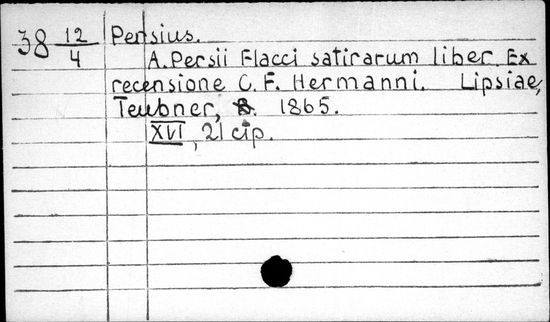 38 12/4 Persius.
A. Persii Flacci satirarum liber. Ex
recensione C. F. Hermanni. Lipsiae,
Teubner, 1865.
XVI, 21 cīp.